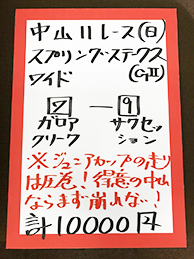 中山11レース(日)
スプリングステークス
ワイド (GⅡ)
2 ー 9
ガロア サクセッ
クリーク ション
※ジュニアカップの走り
は圧巻!得意の中山
ならまず崩れない!
計10000円